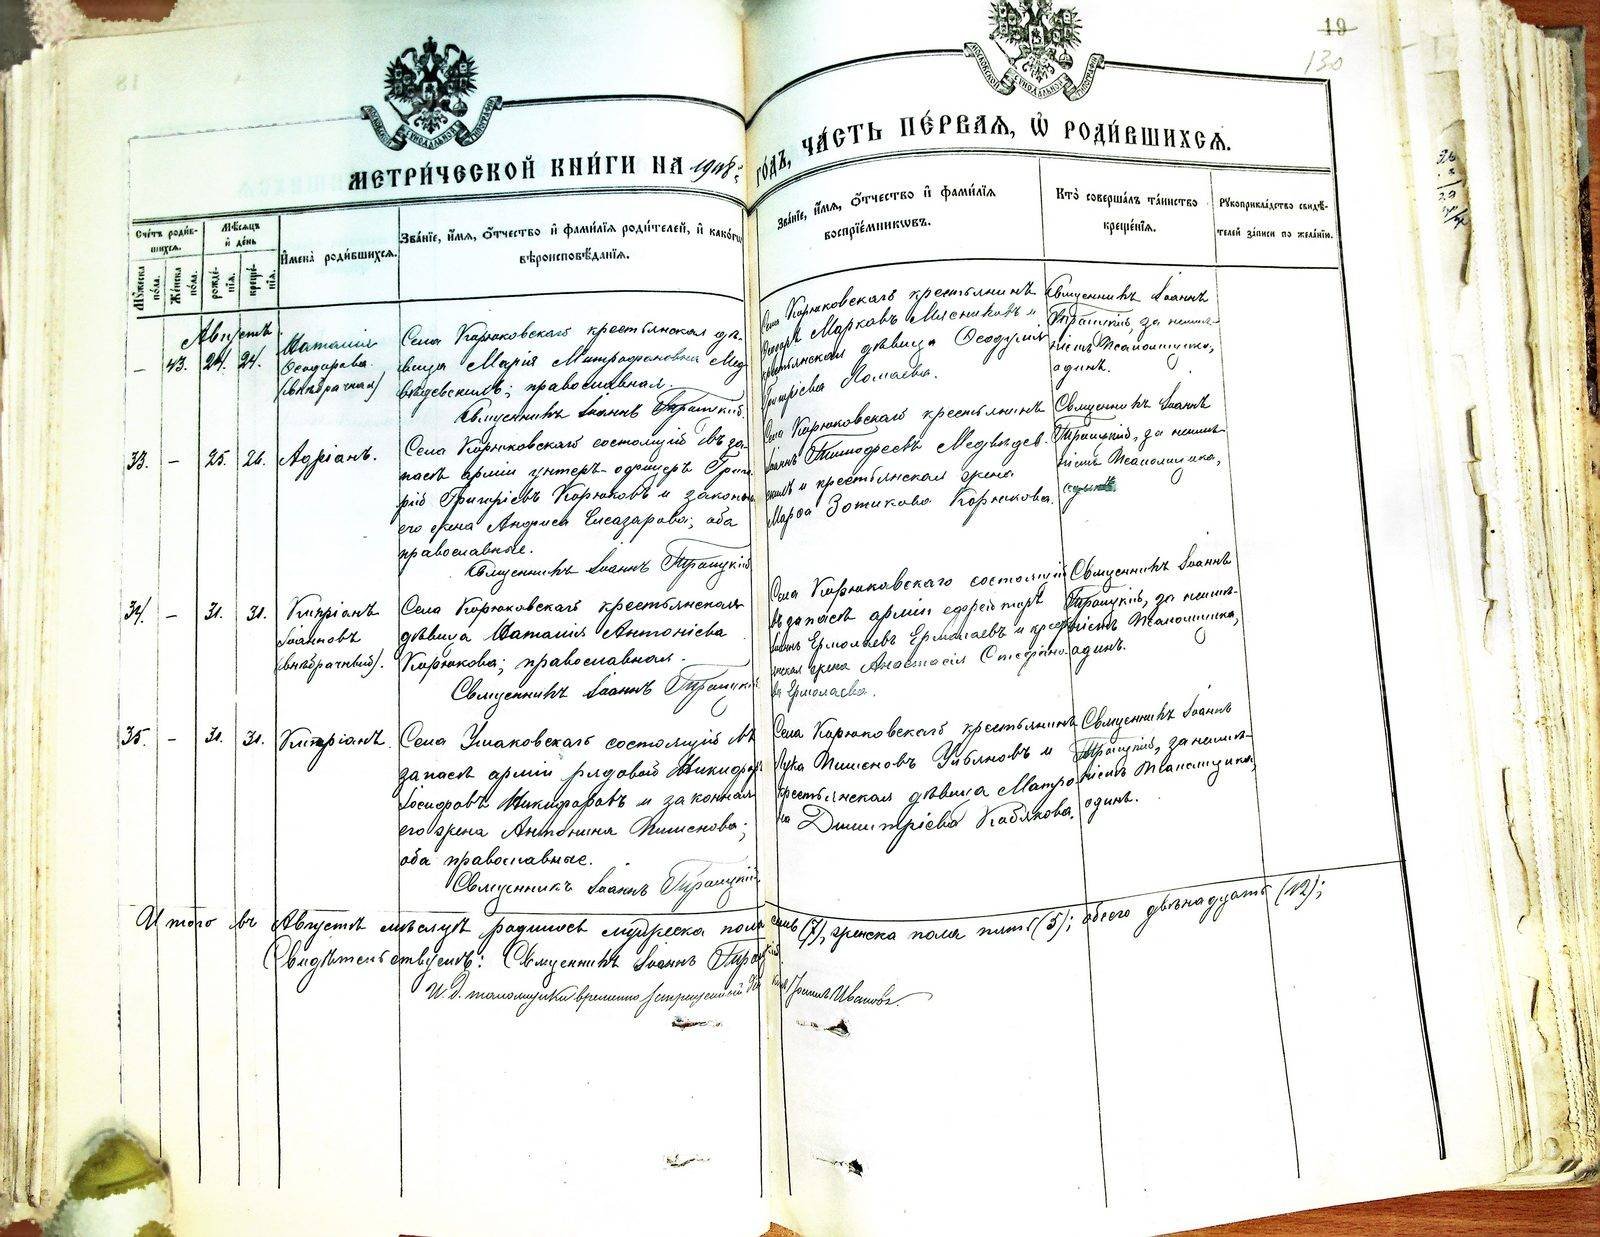 19
130
МОСКОВСКОЙ СѴНОДАЛЬНОЙ ТИПОГРАФІИ
МОСКОВСКОЙ СѴНОДАЛЬНОЙ ТИПОГРАФІИ
МЕТРИ́ЧЕСКОЙ КНИ́ГИ НА 1908 ГО́ДЪ, ЧА́СТЬ ПЕ́РВАѦ, Ѡ҆ РОДИ́ВШИХСѦ.
Сче́тъ роди́вшихсѧ.
Мѣ́сѧцъ и҆ де́нь
Мꙋ́жеска по́ла.
Же́нска по́ла.
рожде́нїѧ.
креще́нїѧ.
И҆мена̀ роди́вшихсѧ.
Зва́нїе, и҆́мѧ, ѻ҆́тчество и҆ фами́лїѧ роди́телей, и҆ како́гѡ вѣроисповѣ́данїѧ.
Зва́нїе, и҆́мѧ, ѻ҆́тчество и҆ фами́лїѧ воспрїе́мникѡвъ.
Кто̀ соверша́лъ та́инство креще́нїѧ.
Рꙋкоприкла́дство свидѣ́телей за́писи по жела́нїю.
Августъ.
– 43. 24. 24.
Наталія
Ѳеодорова
(внѣбрачная)
Села Карюковскаго крестьянская дѣ-
вица Марія Митрофановна Мед
вѣдевскихъ; православная.
Священникъ Іоаннъ Троицкій.
Села Карюковскаго крестьянинъ
Ѳеодоръ Марковъ Мясниковъ и
крестьянская дѣвица Ѳеодулія
Григоріева Ломаева.
Священникъ Іоаннъ
Троицкій, за неимѣ-
ніемъ Псаломщика,
одинъ.
33. – 25. 26. Адріанъ.
Села Карюковскаго состоящій въ за-
пасѣ арміи унтеръ-офицеръ Григо
рій Григоріевъ Карюковъ и законн
его жена Анфиса Елеазарова; оба
православные.
Священникъ Іоаннъ Троицкій
Села Карюковскаго крестьянинъ
Іоаннъ Тимофеевъ Медвѣдев-
скихъ и крестьянская жена
Марѳа Зотикова Карюкова.
Священникъ Іоаннъ
Троицкій, за неимѣ-
ніемъ Псаломщика,
одинъ.
34. – 31. 31.
Кипріанъ
Іоанновъ
(внѣбрачный).
Села Карюковскаго крестьянская
дѣвица Наталія Антоніева
Карюкова; православная.
Священникъ Іоаннъ Троицкій
Села Карюковскаго состоящій
въ запасѣ арміи ефрейторъ
Ермолаевъ Ермолаевъ и крестья
нская жена Анастасія Стефано
ва Ермолаева.
Священникъ Іоаннъ
Троицкій, за неимѣ-
ніемъ Псаломщика,
одинъ.
35. – 31. 31. Кипріанъ.
Села Ушаковскаго состоящій въ
запасѣ арміи рядовой Никифоръ
Іосифовъ Никифоровъ и законная
его жена Антонина Пименова;
оба православные.
Священникъ Іоаннъ Троицкій
Села Карюковскаго крестьянинъ
Лука Пименовъ и
крестьянская дѣвица Матро
на Димитріева Кабакова.
Священникъ Іоаннъ
Троицкій, за неимѣ-
ніемъ Псаломщика,
одинъ.
Итого въ Августѣ мѣсяцѣ родилось мужеска пола семь (7), женска пола пять (5); обоего двѣнадцать (12);
Свидѣтельствуемъ: Священникъ Іоаннъ Троицкій
И. Д. псаломщика временно Ивановъ.